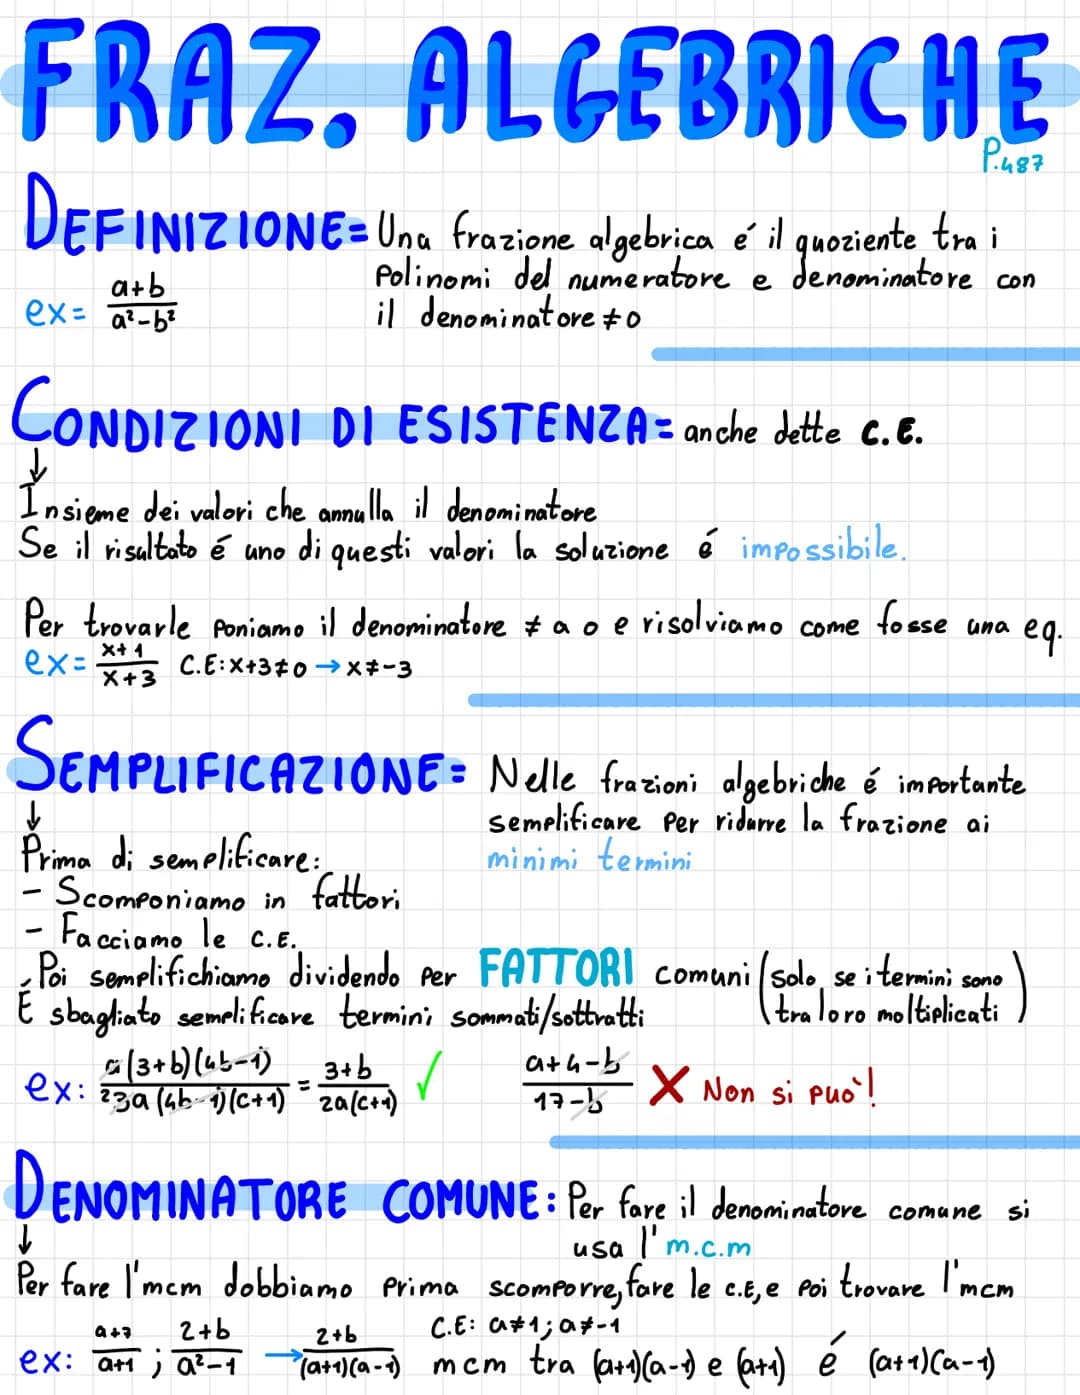 FRAZ. ALGEBRICHE
P.487
DEFINIZIONE= Una frazione algebrica é il quoziente tra i
Polinomi del numeratore e denominatore con
il denominatore ≠0
ex= a+b/a²-b²
CONDIZIONI DI ESISTENZA= anche dette C.E.
↓
Insieme dei valori che annulla il denominatore
Se il risultato é uno di questi valori la soluzione é impossibile.
Per trovarle Poniamo il denominatore ≠ a 0 e risolviamo come fosse una eq.
ex= x+1/x+3 C.E:x+3≠0 → x≠-3
SEMPLIFICAZIONE= Nelle frazioni algebriche é importante
semplificare Per ridurre la frazione ai
minimi termini
↓
Prima di semplificare:
- Scomponiamo in fattori
- Facciamo le C.E.
Poi semplifichiamo dividendo Per FATTORI comuni (solo se i termini sono
tra loro moltiplicati)
É sbagliato semplificare termini sommati/sottratti
ex: a(3+b)(4b-1)/23a(4b-1)(c+1) = 3+b/2a(c+1) ✓ a+4-b/17-b X Non si può!
DENOMINATORE COMUNE: Per fare il denominatore comune si
usa l'm.c.m
↓
Per fare l'mcm dobbiamo Prima scomporre, fare le C.E, e Poi trovare l'mcm
ex: a+7/a+1 ; 2+b/a²-1 → 2+b/(a+1)(a-1) C.E: a≠1; a≠-1
mcm tra (a+1)(a-1) e (a+1) é (a+1)(a-1)